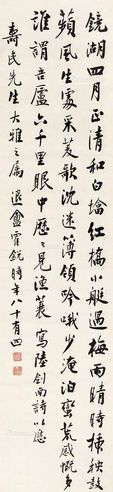 鏡湖四月正清和白墖紅橋小艇過梅雨晴時插秧鼓
蘋風生處采菱歌沈迷簿領吟哦少淹泊蠻荒感慨多
誰謂吾廬六千里眼中歷歷見漁蓑寫陸劍南詩以應
壽民先生大雅之屬 盦 銳時年八十有四